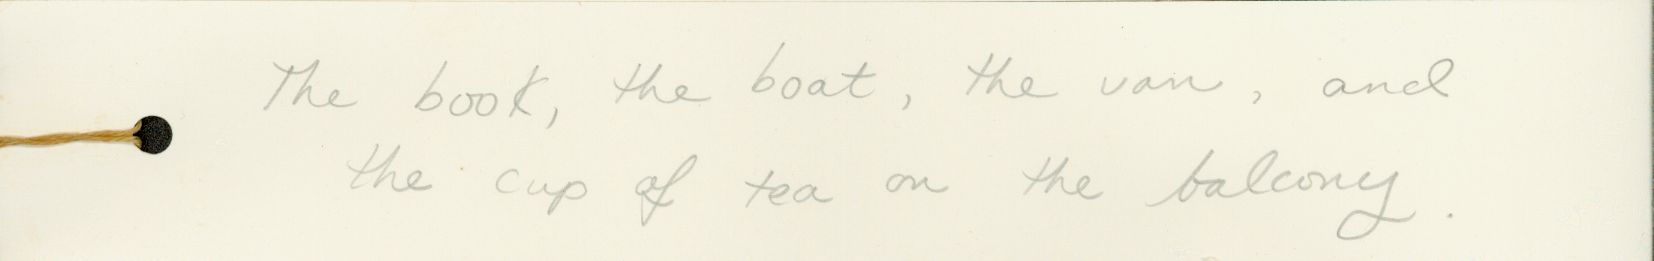 The book, the boat, the van, and
the cup of tea on the balcony.